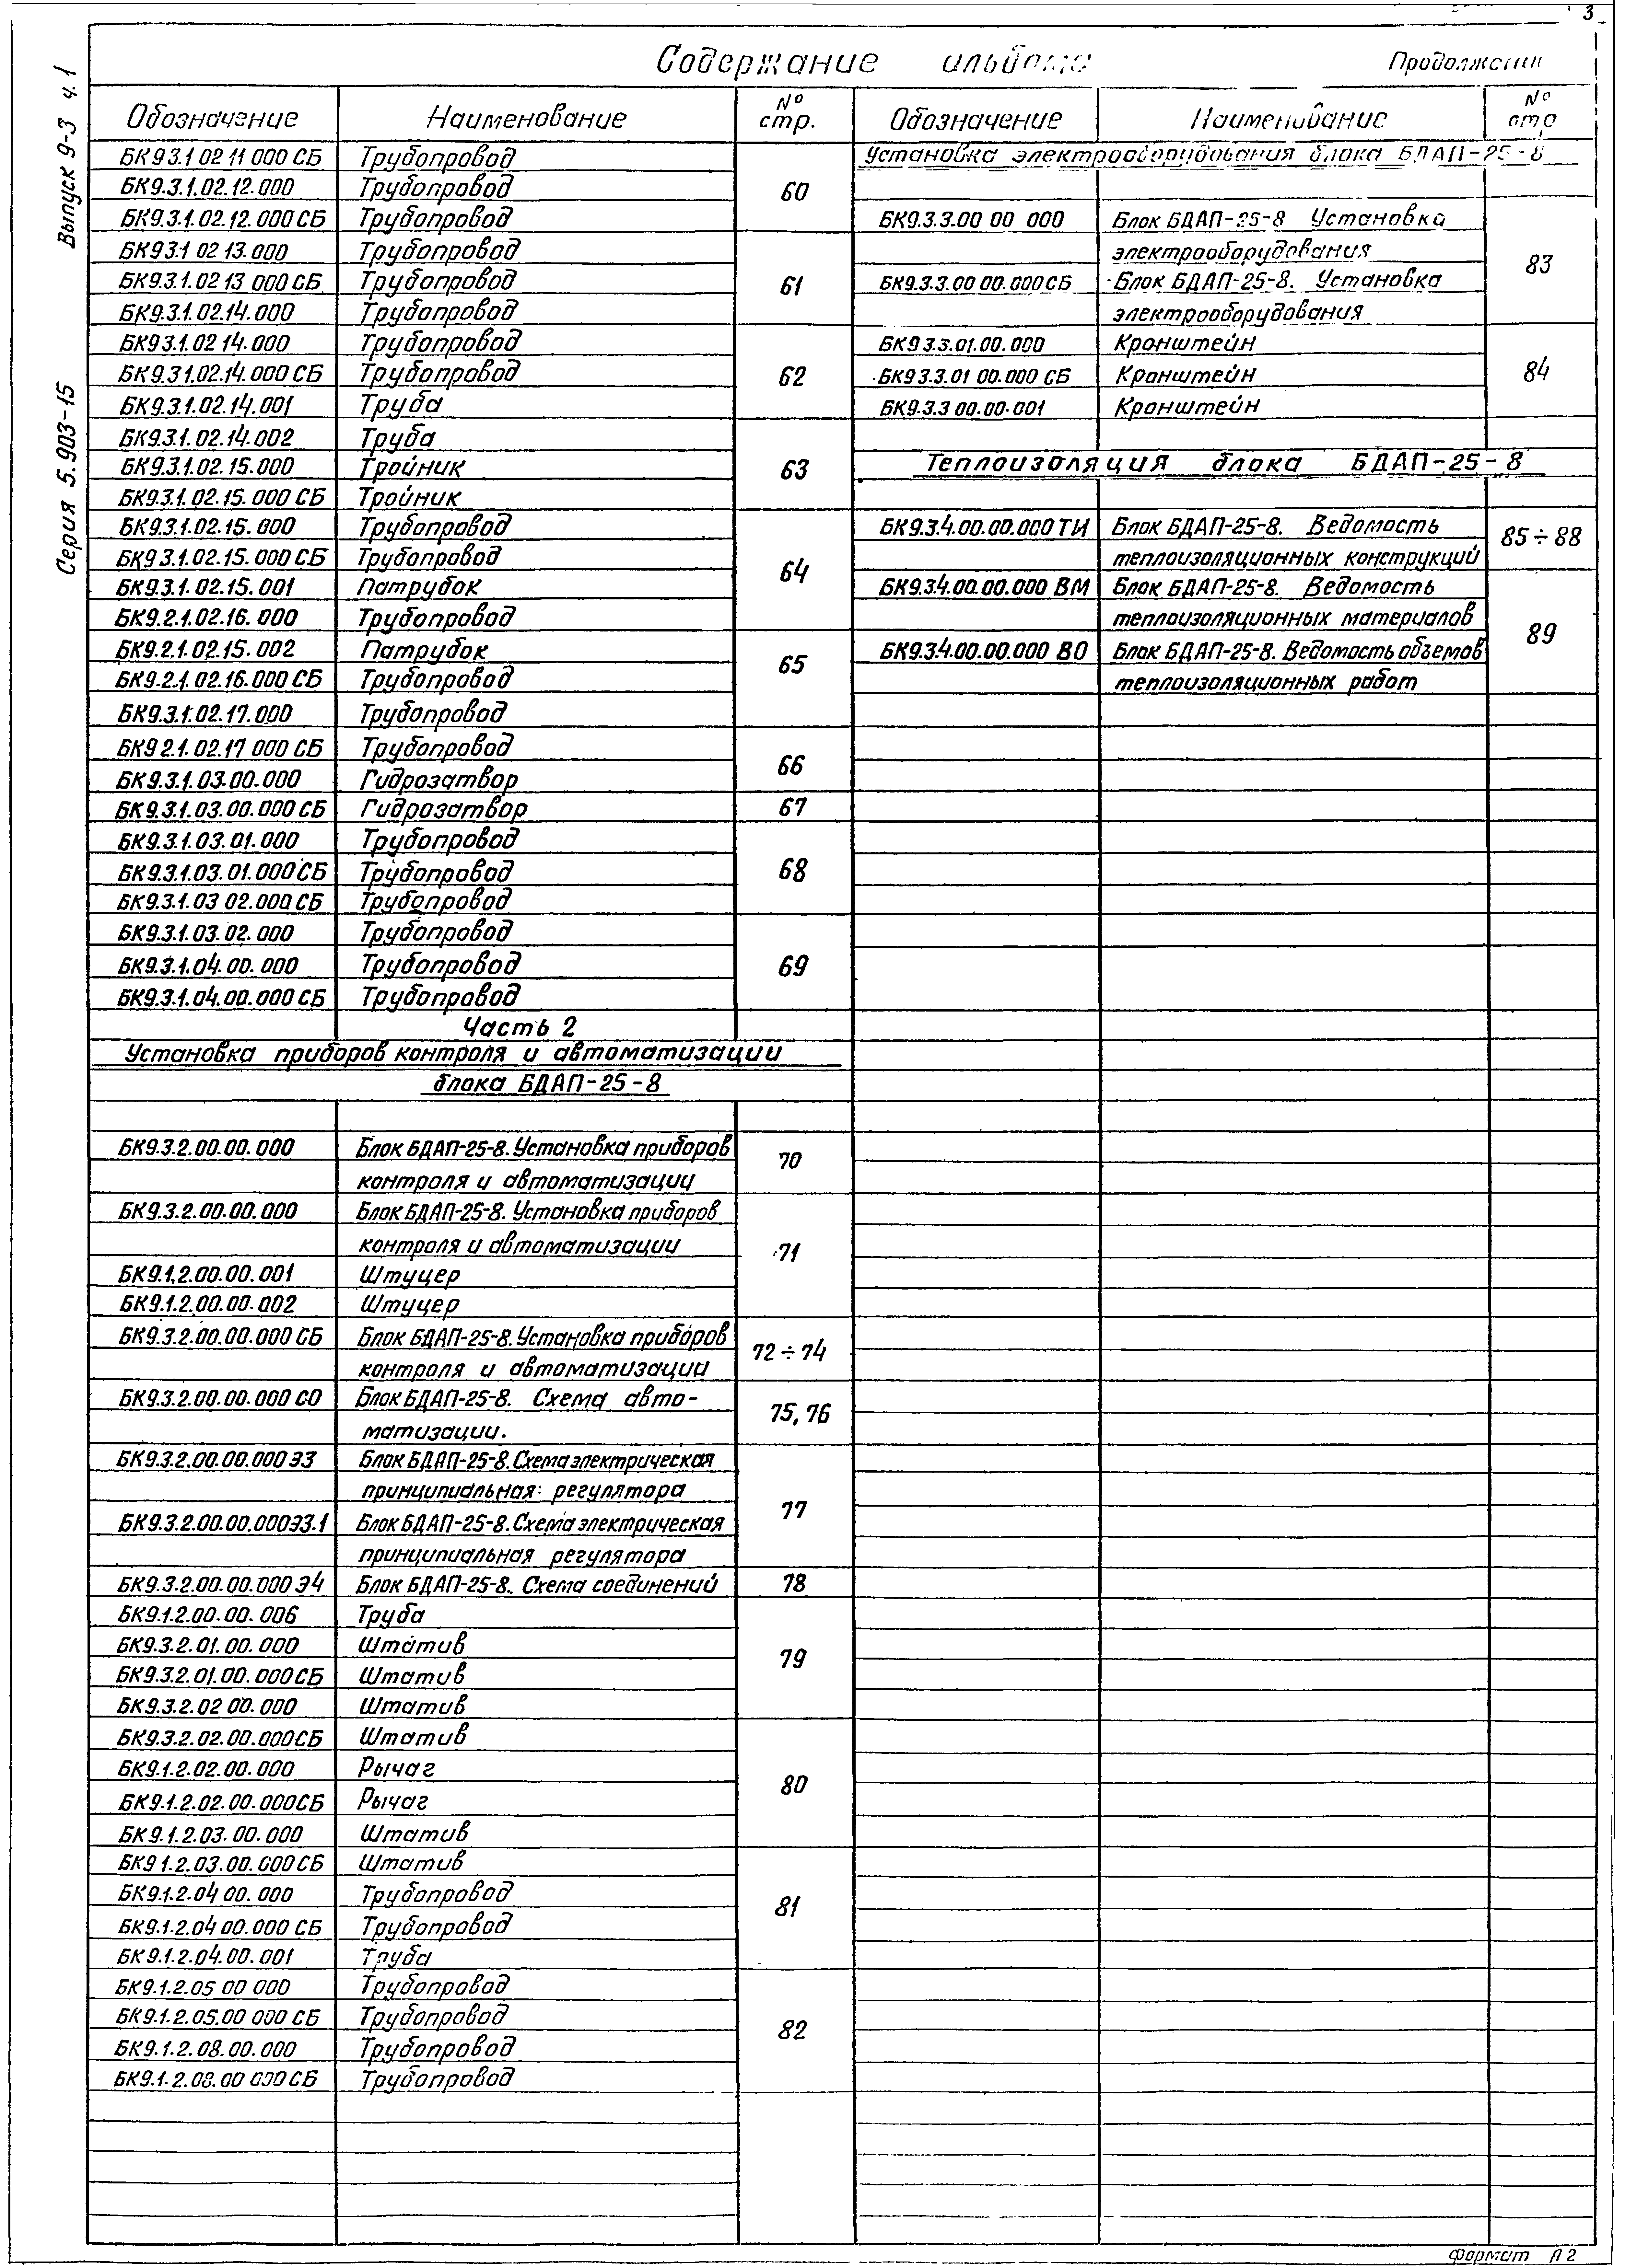 3
Серия 5.903-15 Выпуск 9-3 ч.1
Содержание альбома
Продолжение
Обозначение Наименование № стр.
БК9 3.1 02 11 000 СБ Трубопровод
БК9.3.1.02.12.000 Трубопровод 60
БК9.3.1.02.12.000 СБ Трубопровод
БК9 3.1 02 13.000 Трубопровод
БК9.3.1.02 13 000 СБ Трубопровод 61
БК9.3.1.02.14.000 Трубопровод
БК9 3.1.02 14.000 Трубопровод
БК9.3.1.02.14.000 СБ Трубопровод 62
БК9.3.1.02.14.001 Труба
БК9.3.1.02.14.002 Труба
БК9.3.1.02.15.000 Тройник 63
БК9.3.1.02.15.000 СБ Тройник
БК9.3.1.02.15.000 Трубопровод
БК9 3.1.02.15.000 СБ Трубопровод 64
БК9.3.1.02.15.001 Патрубок
БК9.2.1.02.16.000 Трубопровод
БК9.2.1.02.15.002 Патрубок
БК9.2.1.02.16.000 СБ Трубопровод 65
БК9.3.1.02.17.000 Трубопровод
БК9 2.1.02.17 000 СБ Трубопровод 66
БК9.3.1.03.00.000 Гидрозатвор
БК9.3.1.03.00.000 СБ Гидрозатвор 67
БК9.3.1.03.01.000 Трубопровод
БК9.3.1.03.01.000 СБ Трубопровод 68
БК9.3.1.03 02.000 СБ Трубопровод
БК9.3.1.03.02.000 Трубопровод
БК9.3.1.04.00.000 Трубопровод 69
БК9.3.1.04.00.000 СБ Трубопровод
Часть 2
Установка приборов контроля и автоматизации
блока БДАП-25-8
БК9.3.2.00.00.000 Блок БДАП-25-8. Установка приборов 70
контроля и автоматизации
БК9.3.2.00.00.000 Блок БДАП-25-8. Установка приборов
контроля и автоматизации 71
БК9.1.2.00.00.001 Штуцер
БК9.1.2.00.00.002 Штуцер
БК9.3.2.00.00.000 СБ Блок БДАП-25-8. Установка приборов 72÷74
контроля и автоматизации
БК9.3.2.00.00.000 СО Блок БДАП-25-8. Схема авто- 75, 76
матизации.
БК9.3.2.00.00.000 Э3 Блок БДАП-25-8. Схема электрическая
принципиальная регулятора 77
БК9.3.2.00.00.000Э3.1 Блок БДАП-25-8. Схема электрическая
принципиальная регулятора
БК9.3.2.00.00.000 Э4 Блок БДАП-25-8. Схема соединений 78
БК9.1.2.00.00.006 Труба
БК9.3.2.01.00.000 Штатив 79
БК9.3.2.01.00.000СБ Штатив
БК9.3.2.02 00.000 Штатив
БК9.3.2.02.00.000СБ Штатив
БК9.1.2.02.00.000 Рычаг 80
БК9.1.2.02.00.000СБ Рычаг
БК9.1.2.03.00.000 Штатив
БК9 1.2.03.00.000СБ Штатив
БК9.1.2.04 00.000 Трубопровод 81
БК9.1.2.04 00.000 СБ Трубопровод
БК9.1.2.04.00.001 Труба
БК9.1.2.05 00 000 Трубопровод
БК9.1.2.05.00 000 СБ Трубопровод 82
БК9.1.2.08.00.000 Трубопровод
БК9.1.2.08.00 000 СБ Трубопровод
Обозначение Наименование № стр
Установка электрооборудования блока БДАП-25-8
БК9.3.3.00 00 000 Блок БДАП-25-8 Установка
электрооборудования 83
БК9.3.3.00 00.000СБ Блок БДАП-25-8. Установка
электрооборудования
БК9 3.3.01.00.000 Кронштейн
БК9 3.3.01 00.000 СБ Кранштейн 84
БК9.3.3 00.00.001 Кронштейн
Теплоизоляция блока БДАП-25-8
БК9.3.4.00.00.000 ТИ Блок БДАП-25-8. Ведомость 85÷88
теплоизоляционных конструкций
БК9.3.4.00.00.000 ВМ Блок БДАП-25-8. Ведомость
теплоизоляционных материалов 89
БК9.3.4.00.00.000 ВО Блок БДАП-25-8. Ведомость объемов
теплоизоляционных работ
формат А2